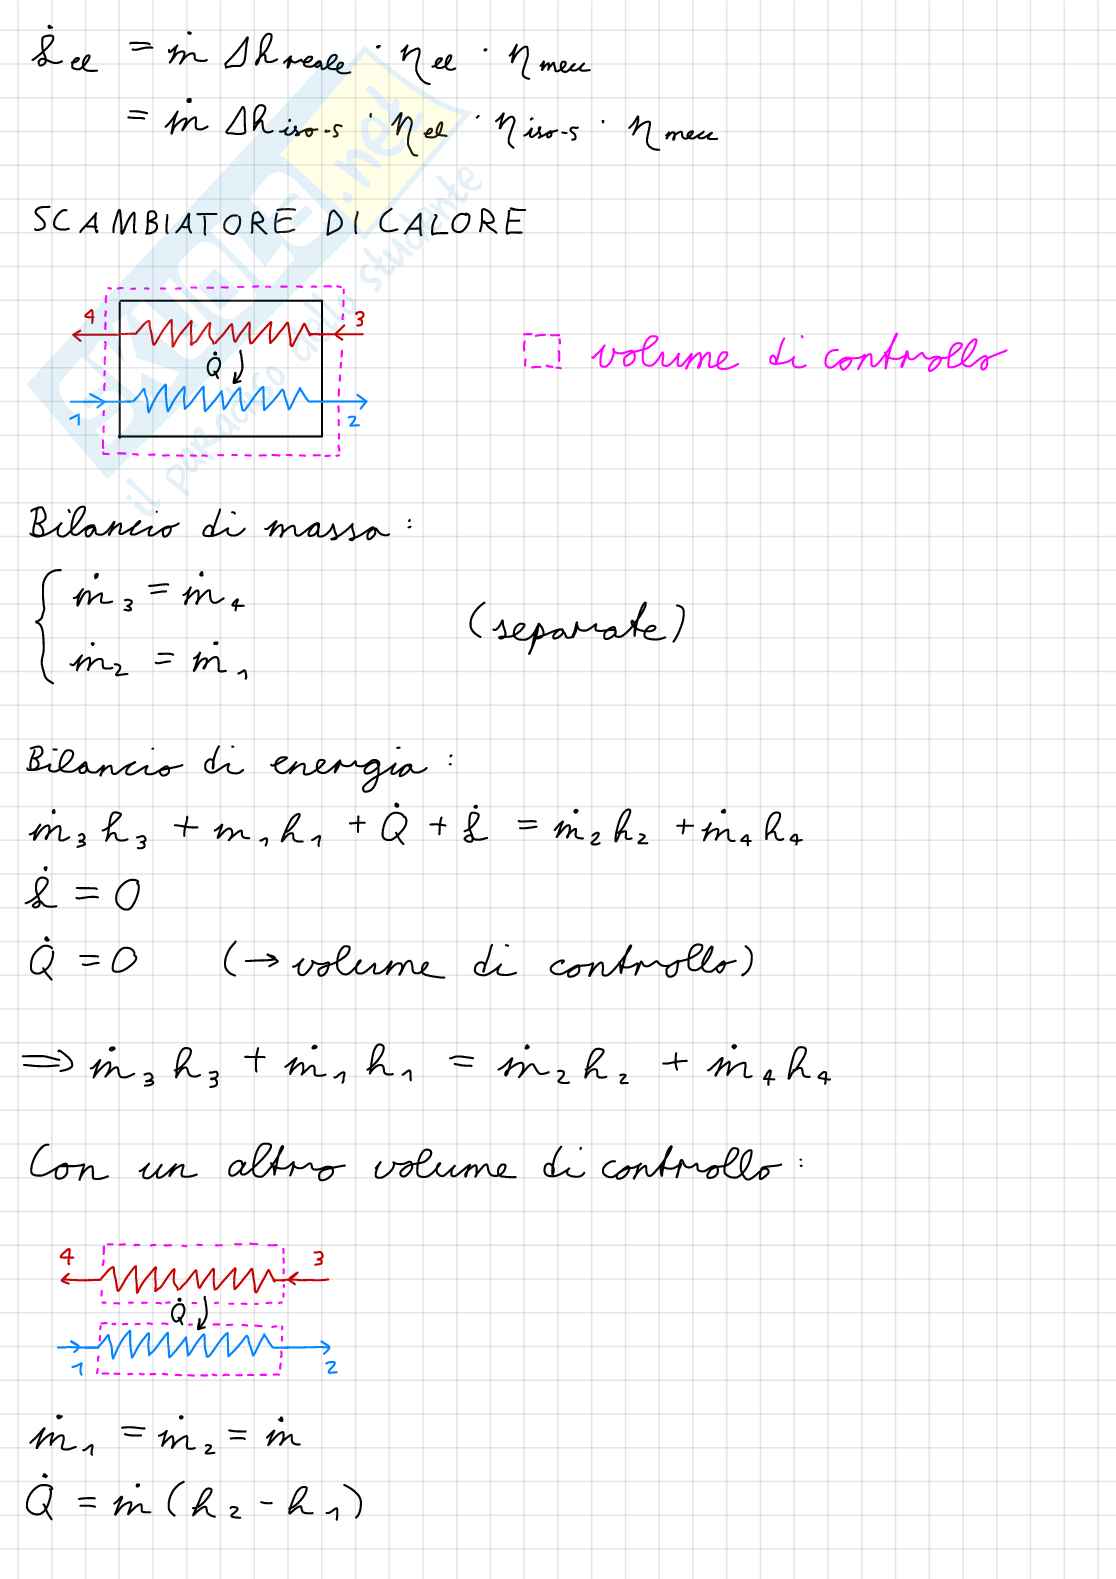 L̇el = ṁ Δhreale · ηel · ηmecc
= ṁ Δhiso-s · ηel · ηiso-s · ηmecc
SCAMBIATORE DI CALORE
4 3
Q̇
1 2
volume di controllo
Bilancio di massa :
ṁ3 = ṁ4
(separate)
ṁ2 = ṁ1
Bilancio di energia :
ṁ3 h3 + m1 h1 + Q̇ + L̇ = ṁ2 h2 + ṁ4 h4
L̇ = 0
Q̇ = 0 (→ volume di controllo)
⇒ ṁ3 h3 + ṁ1 h1 = ṁ2 h2 + ṁ4 h4
Con un altro volume di controllo :
4 3
Q̇
1 2
ṁ1 = ṁ2 = ṁ
Q̇ = ṁ (h2 - h1)